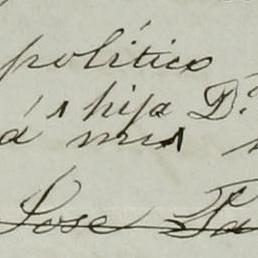 político
á s hija D.
á mis
Jose